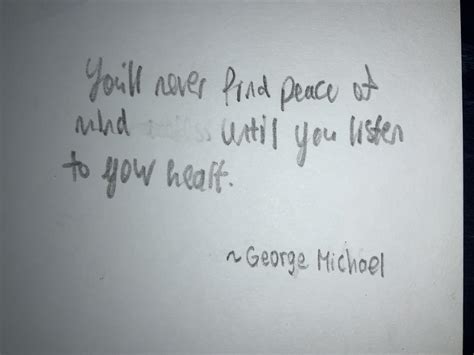 You'll never find peace of
mind until you listen
to your heart.
~George Michael